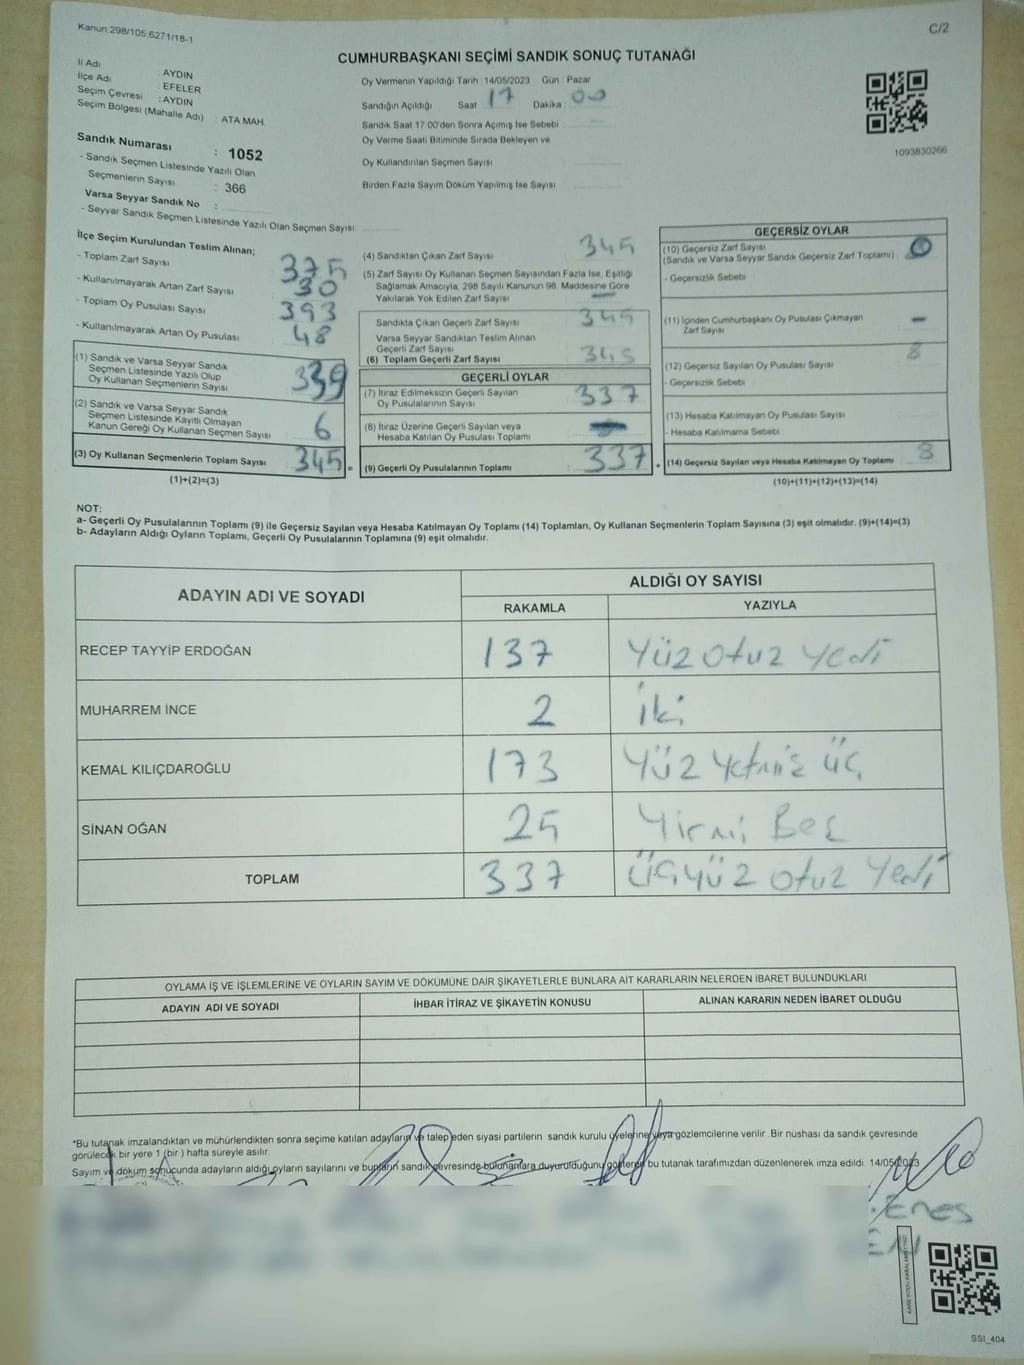 Kanun,298/105,6271/18-1
C/2
CUMHURBAŞKANI SEÇİMİ SANDIK SONUÇ TUTANAĞI
İl Adı : AYDIN
İlçe Adı : EFELER
Seçim Çevresi : AYDIN
Seçim Bölgesi (Mahalle Adı) : ATA MAH
Sandık Numarası : 1052
- Sandık Seçmen Listesinde Yazılı Olan
Seçmenlerin Sayısı : 366
Varsa Seyyar Sandık No :
- Seyyar Sandık Seçmen Listesinde Yazılı Olan Seçmen Sayısı:
Oy Vermenin Yapıldığı Tarih 14/05/2023 Gün : Pazar
Sandığın Açıldığı Saat 17 Dakika : 00
Sandık Saat 17.00'den Sonra Açımış İse Sebebi :
Oy Verme Saati Bitiminde Sırada Bekleyen ve
Oy Kullandırılan Seçmen Sayısı :
Birden Fazla Sayım Döküm Yapılmış İse Sayısı :
1093830266
İlçe Seçim Kurulundan Teslim Alınan;
- Toplam Zarf Sayısı : 375
- Kullanılmayarak Artan Zarf Sayısı : 30
- Toplam Oy Pusulası Sayısı : 393
- Kullanılmayarak Artan Oy Pusulası : 48
(1) Sandık ve Varsa Seyyar Sandık
Seçmen Listesinde Yazılı Olup
Oy Kullanan Seçmenlerin Sayısı : 339
(2) Sandık ve Varsa Seyyar Sandık
Seçmen Listesinde Kayıtlı Olmayan
Kanun Gereği Oy Kullanan Seçmen Sayısı : 6
(3) Oy Kullanan Seçmenlerin Toplam Sayısı : 345 =
(1)+(2)=(3)
(4) Sandıktan Çıkan Zarf Sayısı : 345
(5) Zarf Sayısı Oy Kullanan Seçmen Sayısından Fazla İse, Eşitliği
Sağlamak Amacıyla, 298 Sayılı Kanunun 98. Maddesine Göre
Yakılarak Yok Edilen Zarf Sayısı : —
Sandıkta Çıkan Geçerli Zarf Sayısı : 345
Varsa Seyyar Sandıktan Teslim Alınan
Geçerli Zarf Sayısı :
(6) Toplam Geçerli Zarf Sayısı : 345
GEÇERLİ OYLAR
(7) İtiraz Edilmeksizin Geçerli Sayılan
Oy Pusulalarının Sayısı : 337
(8) İtiraz Üzerine Geçerli Sayılan veya
Hesaba Katılan Oy Pusulası Toplamı :
(9) Geçerli Oy Pusulalarının Toplamı : 337 +
GEÇERSİZ OYLAR
(10) Geçersiz Zarf Sayısı
(Sandık ve Varsa Seyyar Sandık Geçersiz Zarf Toplamı) :
- Geçersizlik Sebebi
(11) İçinden Cumhurbaşkanı Oy Pusulası Çıkmayan
Zarf Sayısı : —
(12) Geçersiz Sayılan Oy Pusulası Sayısı : 8
- Geçersizlik Sebebi
(13) Hesaba Katılmayan Oy Pusulası Sayısı :
- Hesaba Katılmama Sebebi
(14) Geçersiz Sayılan veya Hesaba Katılmayan Oy Toplamı : 8
(10)+(11)+(12)+(13)=(14)
NOT:
a- Geçerli Oy Pusulalarının Toplamı (9) ile Geçersiz Sayılan veya Hesaba Katılmayan Oy Toplamı (14) Toplamları, Oy Kullanan Seçmenlerin Toplam Sayısına (3) eşit olmalıdır. (9)+(14)=(3)
b- Adayların Aldığı Oyların Toplamı, Geçerli Oy Pusulalarının Toplamına (9) eşit olmalıdır.
ADAYIN ADI VE SOYADI ALDIĞI OY SAYISI
RAKAMLA YAZIYLA
RECEP TAYYİP ERDOĞAN 137 Yüz otuz yedi
MUHARREM İNCE 2 İki
KEMAL KILIÇDAROĞLU 173 Yüz Yetmiş üç
SİNAN OĞAN 25 Yirmi Beş
TOPLAM 337 Üçyüz otuz Yedi
OYLAMA İŞ VE İŞLEMLERİNE VE OYLARIN SAYIM VE DÖKÜMÜNE DAİR ŞİKAYETLERLE BUNLARA AİT KARARLARIN NELERDEN İBARET BULUNDUKLARI
ADAYIN ADI VE SOYADI İHBAR İTİRAZ VE ŞİKAYETİN KONUSU ALINAN KARARIN NEDEN İBARET OLDUĞU
*Bu tutanak imzalandıktan ve mühürlendikten sonra seçime katılan adayların ve talep eden siyasi partilerin sandık kurulu üyelerine veya gözlemcilerine verilir .Bir nüshası da sandık çevresinde
görülecek bir yere 1 (bir ) hafta süreyle asılır.
Sayım ve döküm sonucunda adayların aldığı oyların sayılarını ve bunların sandık çevresinde bulunanlara duyurulduğunu gösteren bu tutanak tarafımızdan düzenlenerek imza edildi. 14/05/2023
Enes
SSI_404